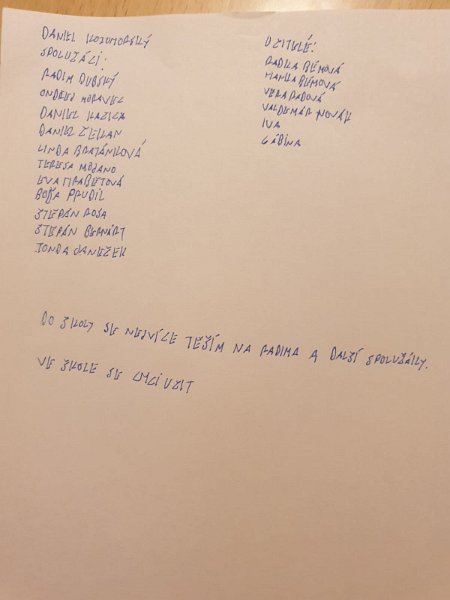 DANIEL KOZUMORSKÝ
SPOLUŽÁCI:
RADIM DUBSKÝ
ONDREJ MORAVEC
DANIEL KAZICA
DANIEL
LINDA BRATÁNKOVÁ
TEREZA MOJANO
EVA
PRUDIL
ŠTEPÁN ROSA
ŠTEPÁN BERNÁRT
JONDA JANEŽEK
UČITELÉ:
RADKA BÉMOVÁ
HANKA BÉMOVÁ
VERA RADOVÁ
VALDEMÁR NOVÁK
IVA
GÁBINA
DO ŠKOLY SE NEJVÍCE TĚŠÍM NA RADIMA A DALŠÍ SPOLUŽÁKY.
VE ŠKOLE SE CHCI UČIT